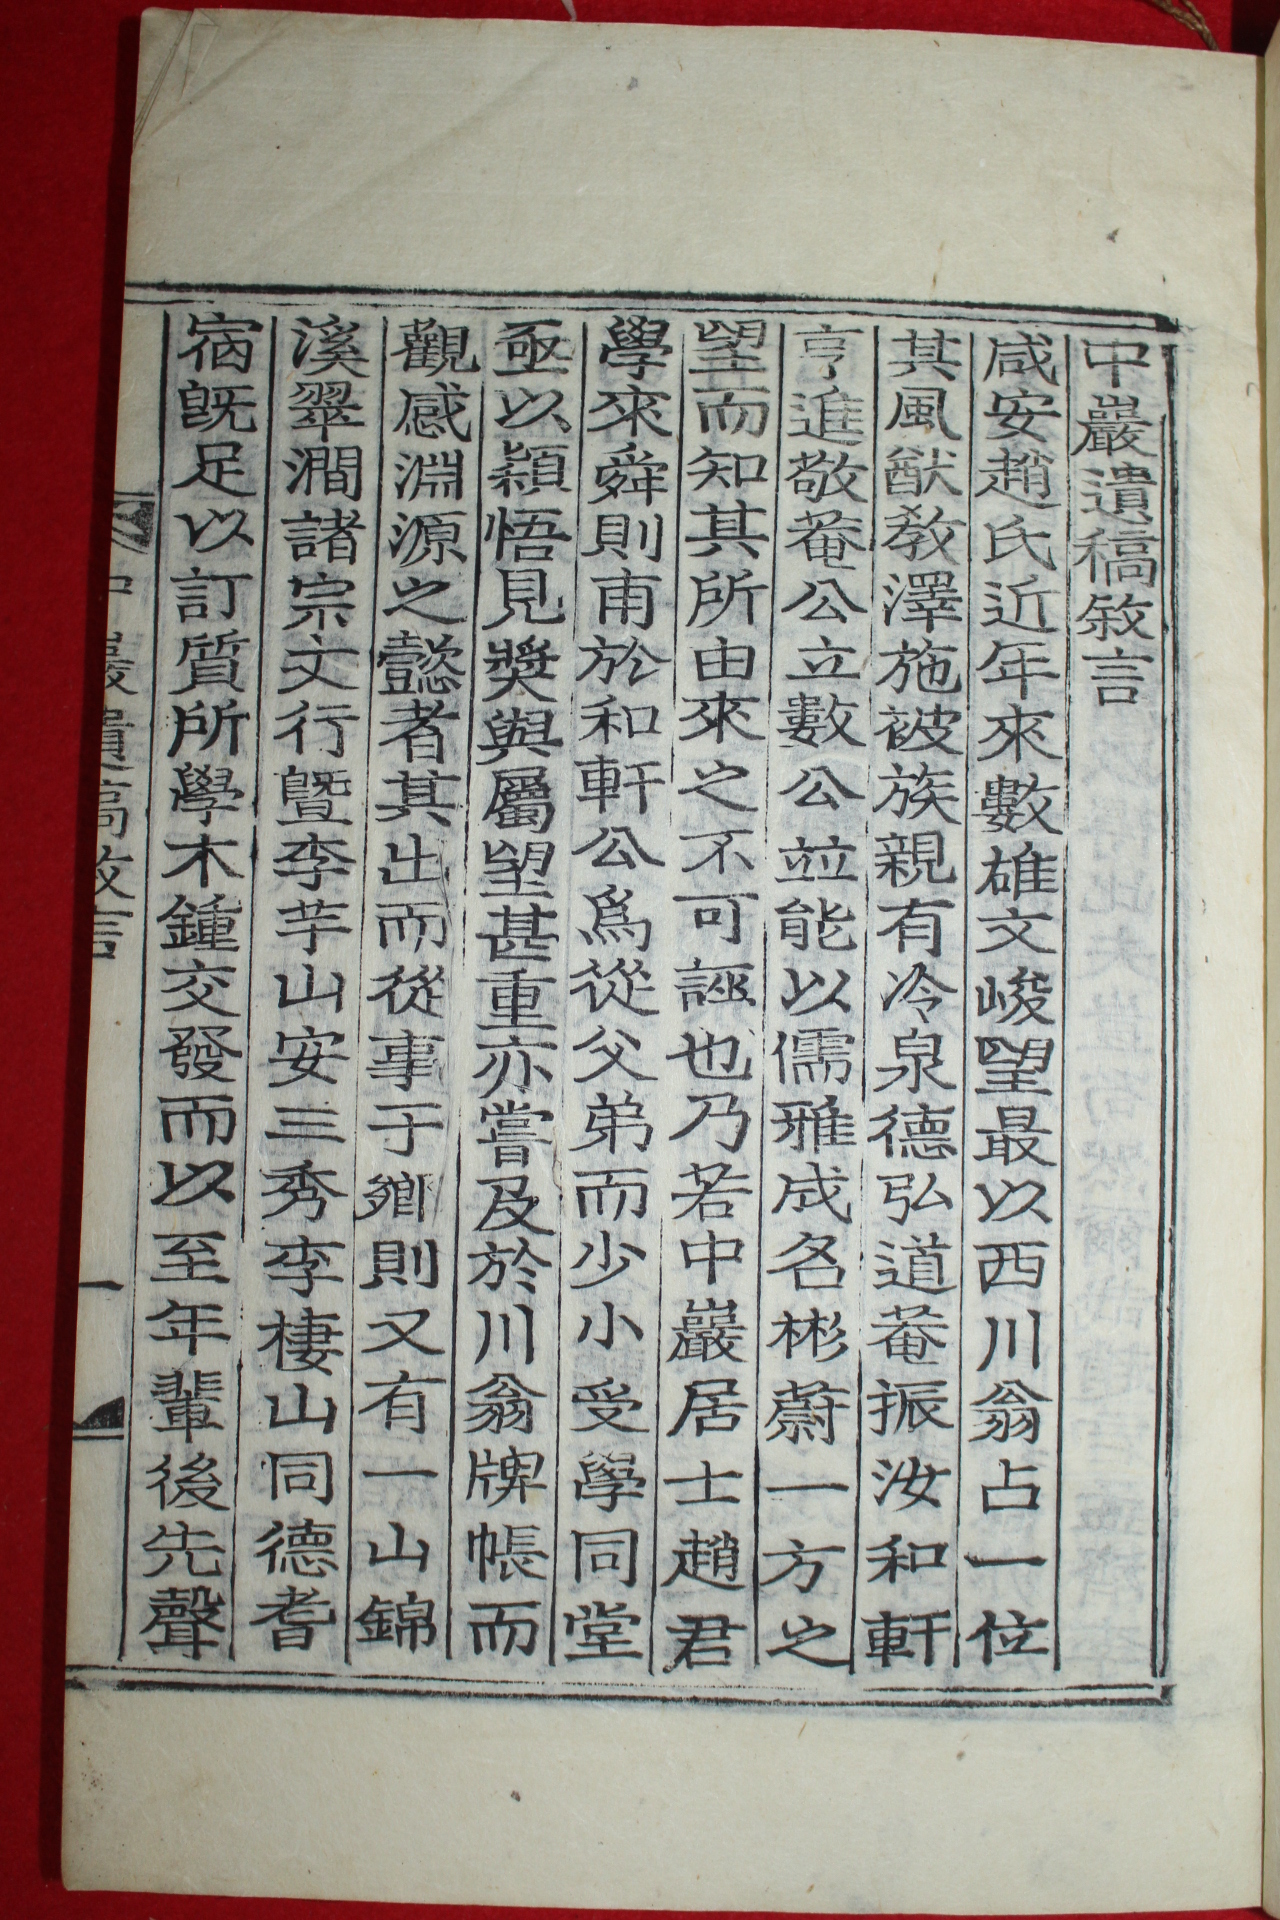 中巖遺稿敘言
咸安趙氏近年來數雄文峻望最以西川翁占一位
其風猷敎澤施被族親有冷泉德弘道菴振汝和軒
亨進敬菴公立數公並能以儒雅成名彬蔚一方之
望而知其所由來之不可誣也乃若中巖居士趙君
學來舜則甫於和軒公爲從父弟而少小受學同堂
亟以穎悟見奬與屬望甚重亦嘗及於川翁牌帳而
觀感淵源之懿者其出而從事于鄕則又有一山錦
溪翠澗諸宗文行曁李芋山安三秀李棲山同德耆
宿旣足以訂質所學木鍾交發而以至年輩後先聲
中巖遺稿敘言
一